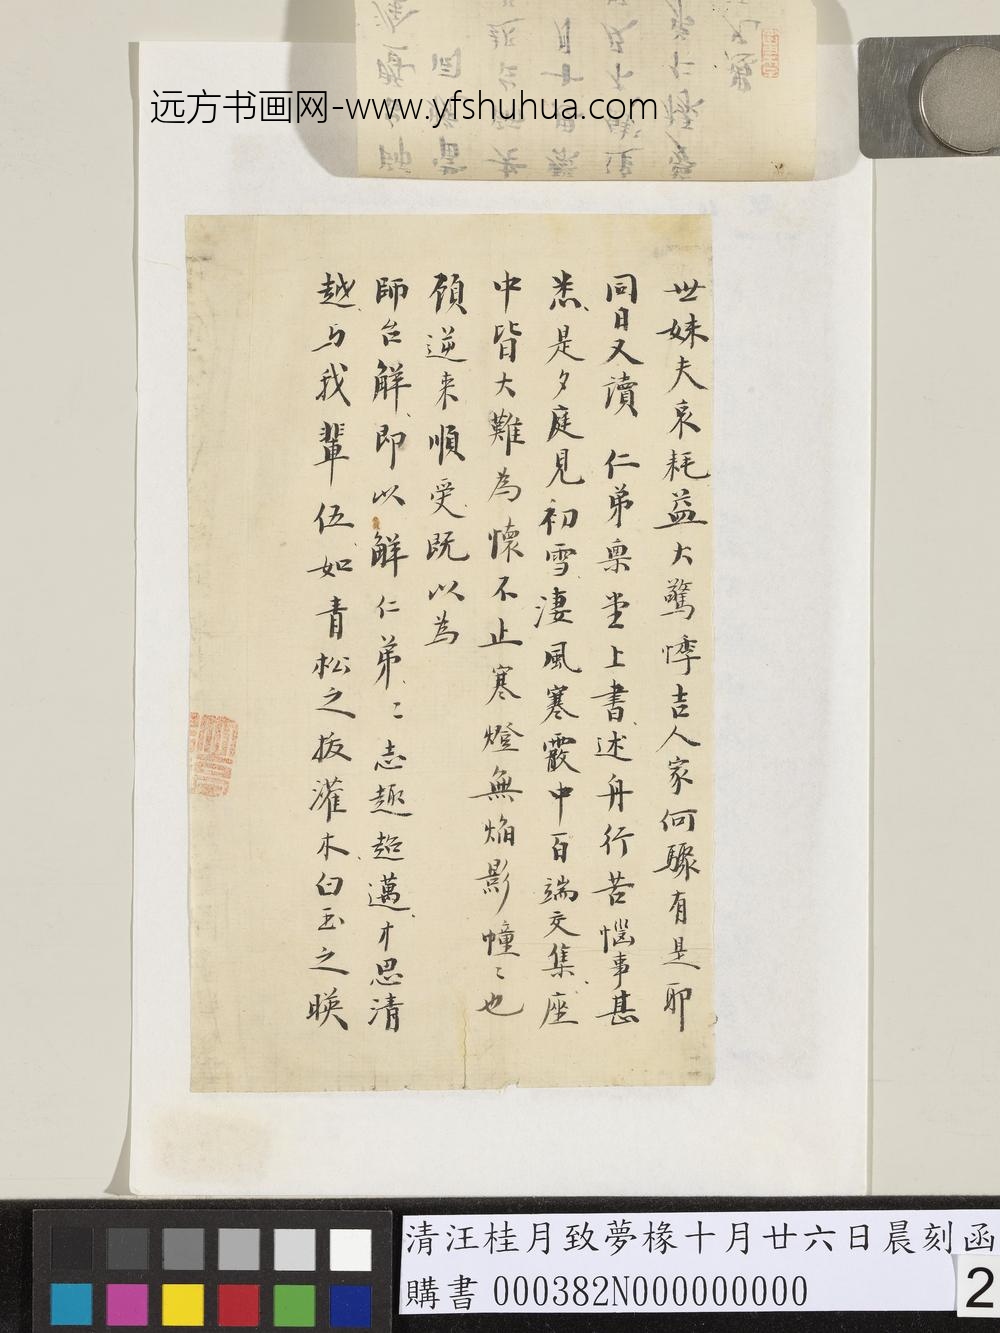 远方书画网-www.yfshuhua.com
世妹夫哀耗益大驚悸吉人家何驟有是耶
同日又讀 仁弟稟堂上書述舟行苦惱事甚
悉是夕庭見初雪淒風寒霰中百端交集座
中皆大難為懷不止寒燈無焰影幢〻也
顧逆来順受既以為
師台解即以解仁弟〻志趣超邁才思清
越与我輩伍如青松之拔灌木白玉之暎
清汪桂月致夢椽十月廿六日晨刻函
購書 000382N000000000
2